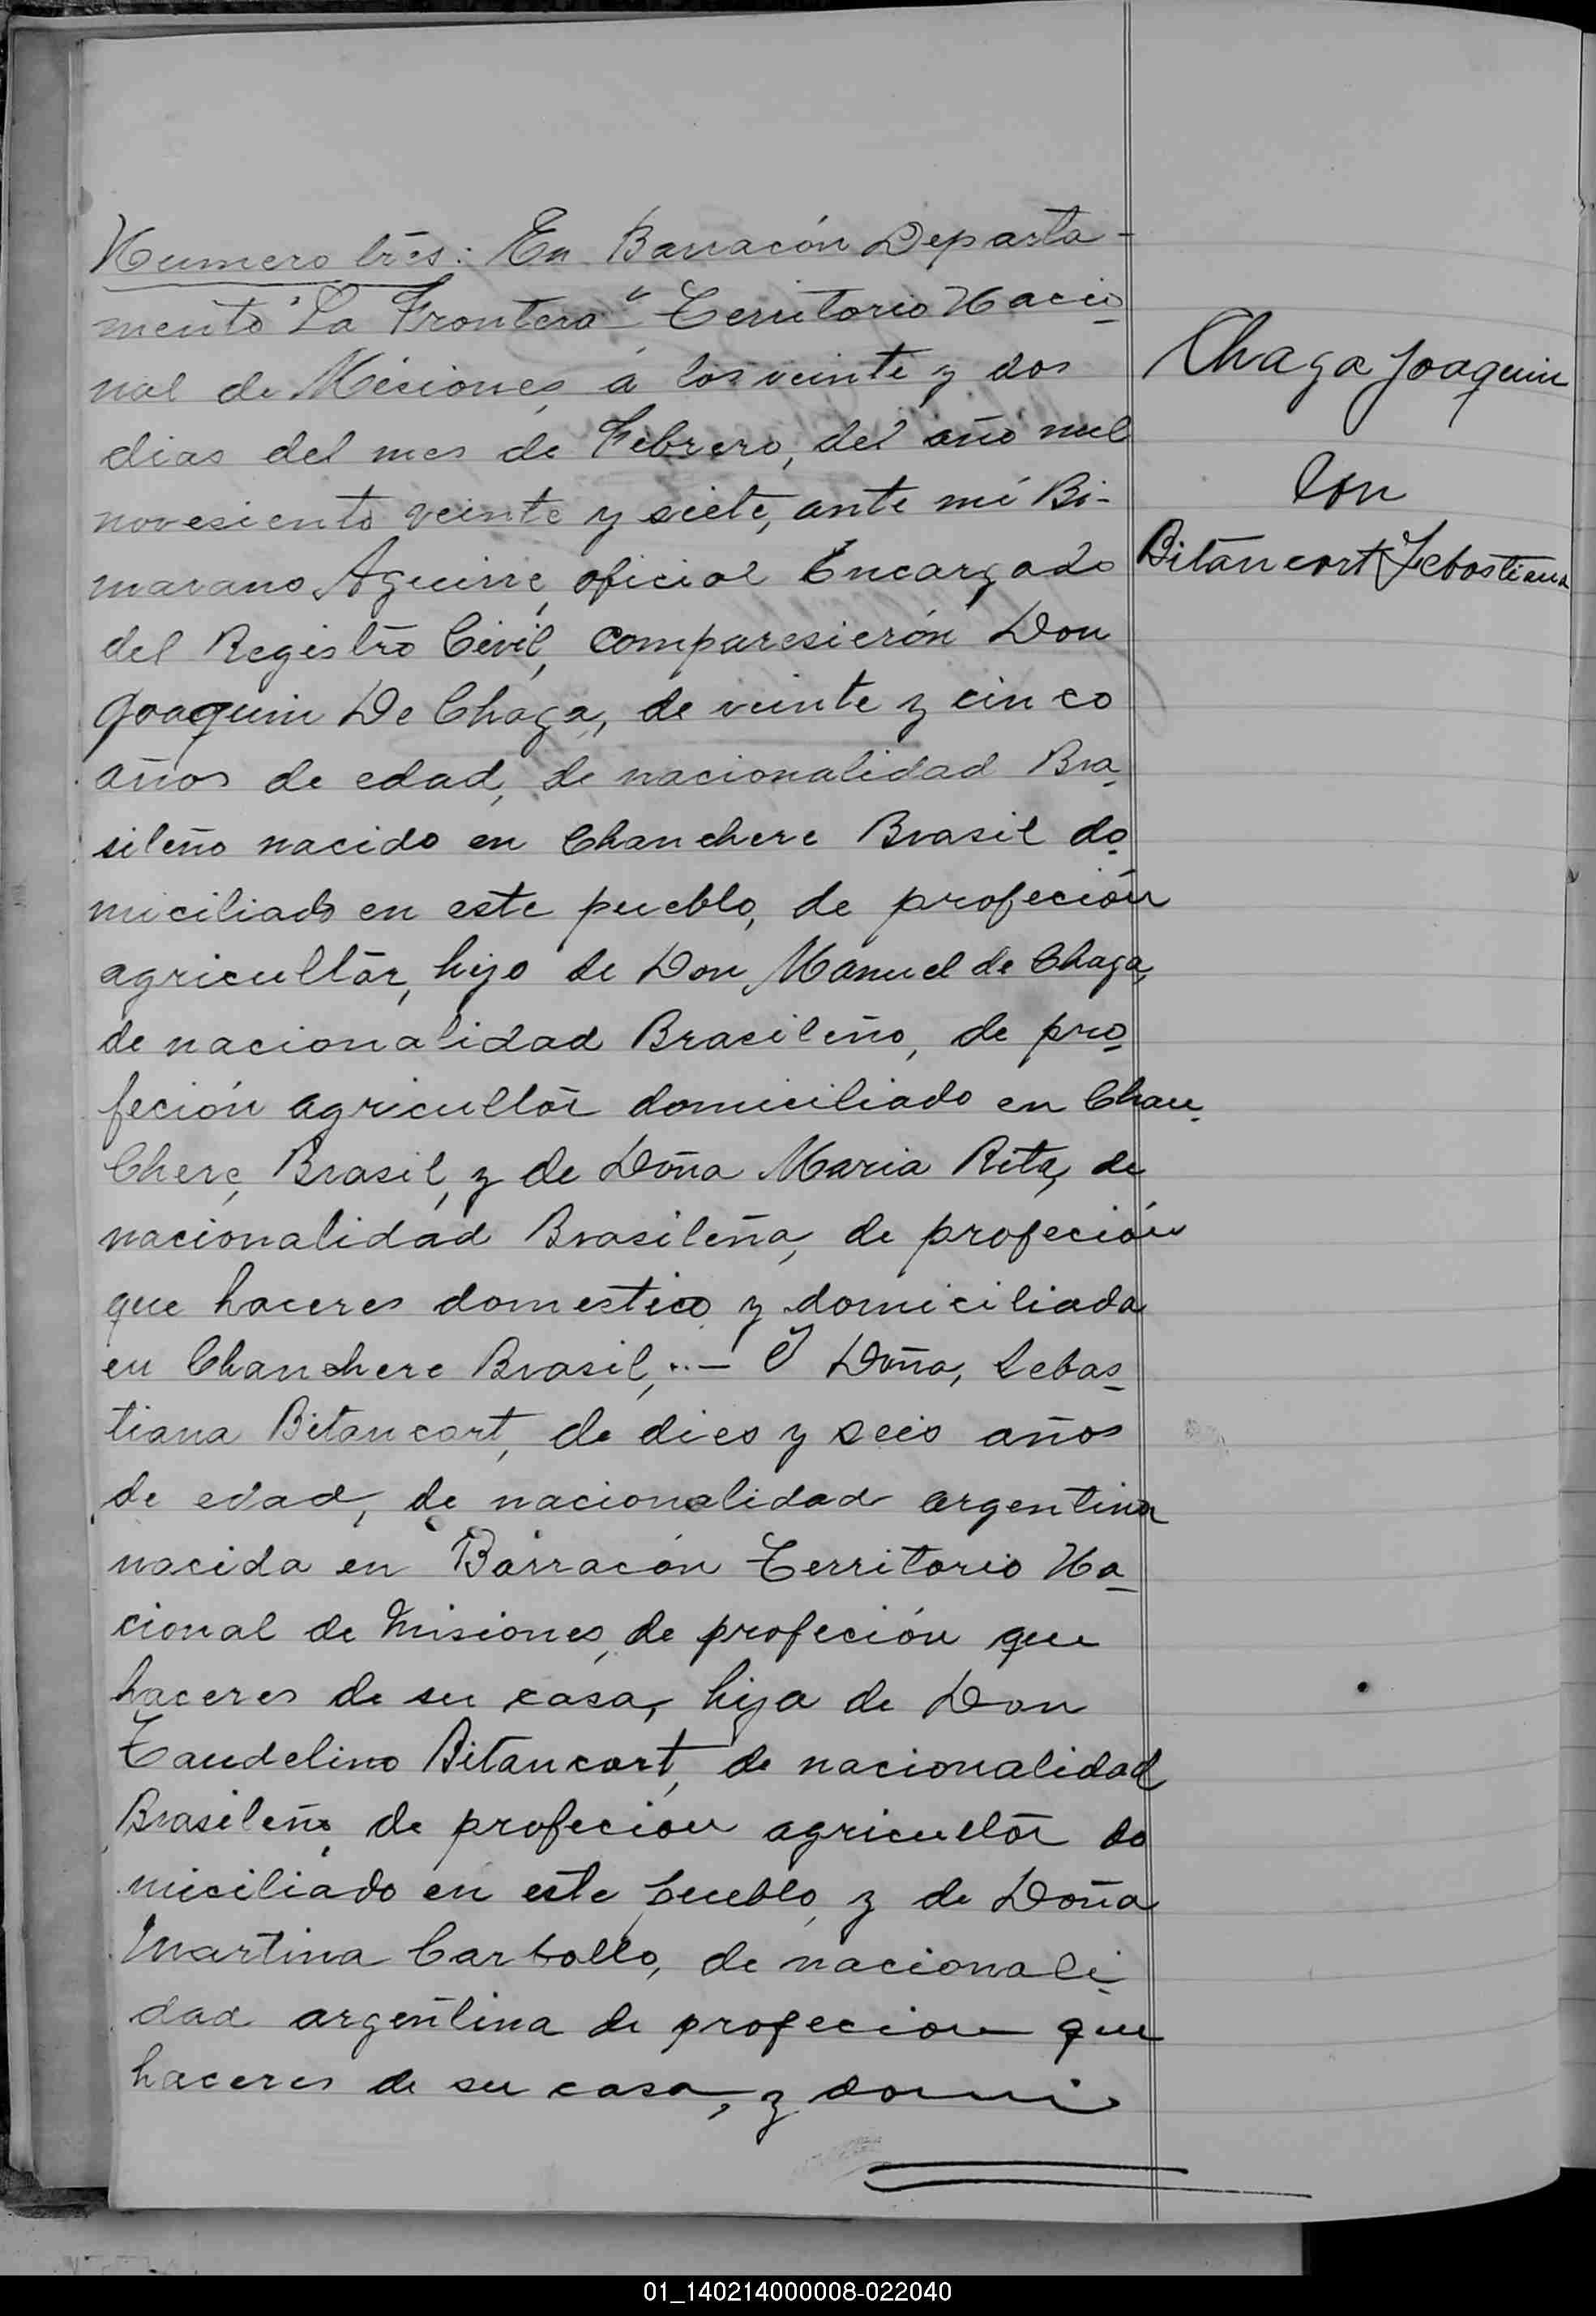 Numero trés: En Barracón Departa-
mento "La Frontera" Territorio Nacio-
nal de Miciones, á los veinte y dos
dias del mes de Febrero, del año mil
novesiento veinte y siete, ante mi Bi-
marano Aguirre, oficial Encargado
del Registro Civil, comparesierón Don
Joaquin De Chaga, de veinte y cinco
años de edad, de nacionalidad Bra-
sileño nacido en Chanchere Brasil do-
miciliado en este pueblo, de profeción
agricultor, hijo de Don Manuel de Chaga,
de nacionalidad Brasileño, de pro-
feción agricultor domiciliado en Chan-
Chere, Brasil, y de Doña Maria Rita, de
nacionalidad Brasileña, de profeción
que haceres domestico y domiciliada
en Chanchere Brasil,..— Y Doña, Sebas-
tiana Bitancort, de dies y seis años
de edad, de nacionalidad argentina
nacida en Barracón Territorio Na-
cional de Misiones, de profeción que
haceres de su casa, hija de Don
Taudelino Bitancort, de nacionalidad
Brasileño, de profeción agricultor do
miciliado en este pueblo, y de Doña
Martina Carballo, de nacionali-
dad argentina de profecion que
haceres de su casa, y domi
Chaga Joaquin
Con
Bitancort Sebastiana
01_140214000008-022040